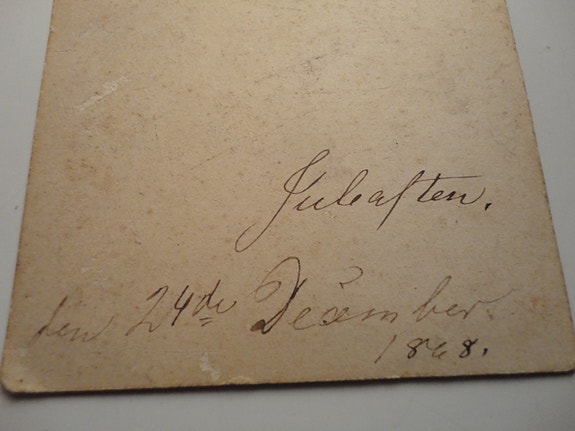 Juleaften.
den 24de December.
1868.